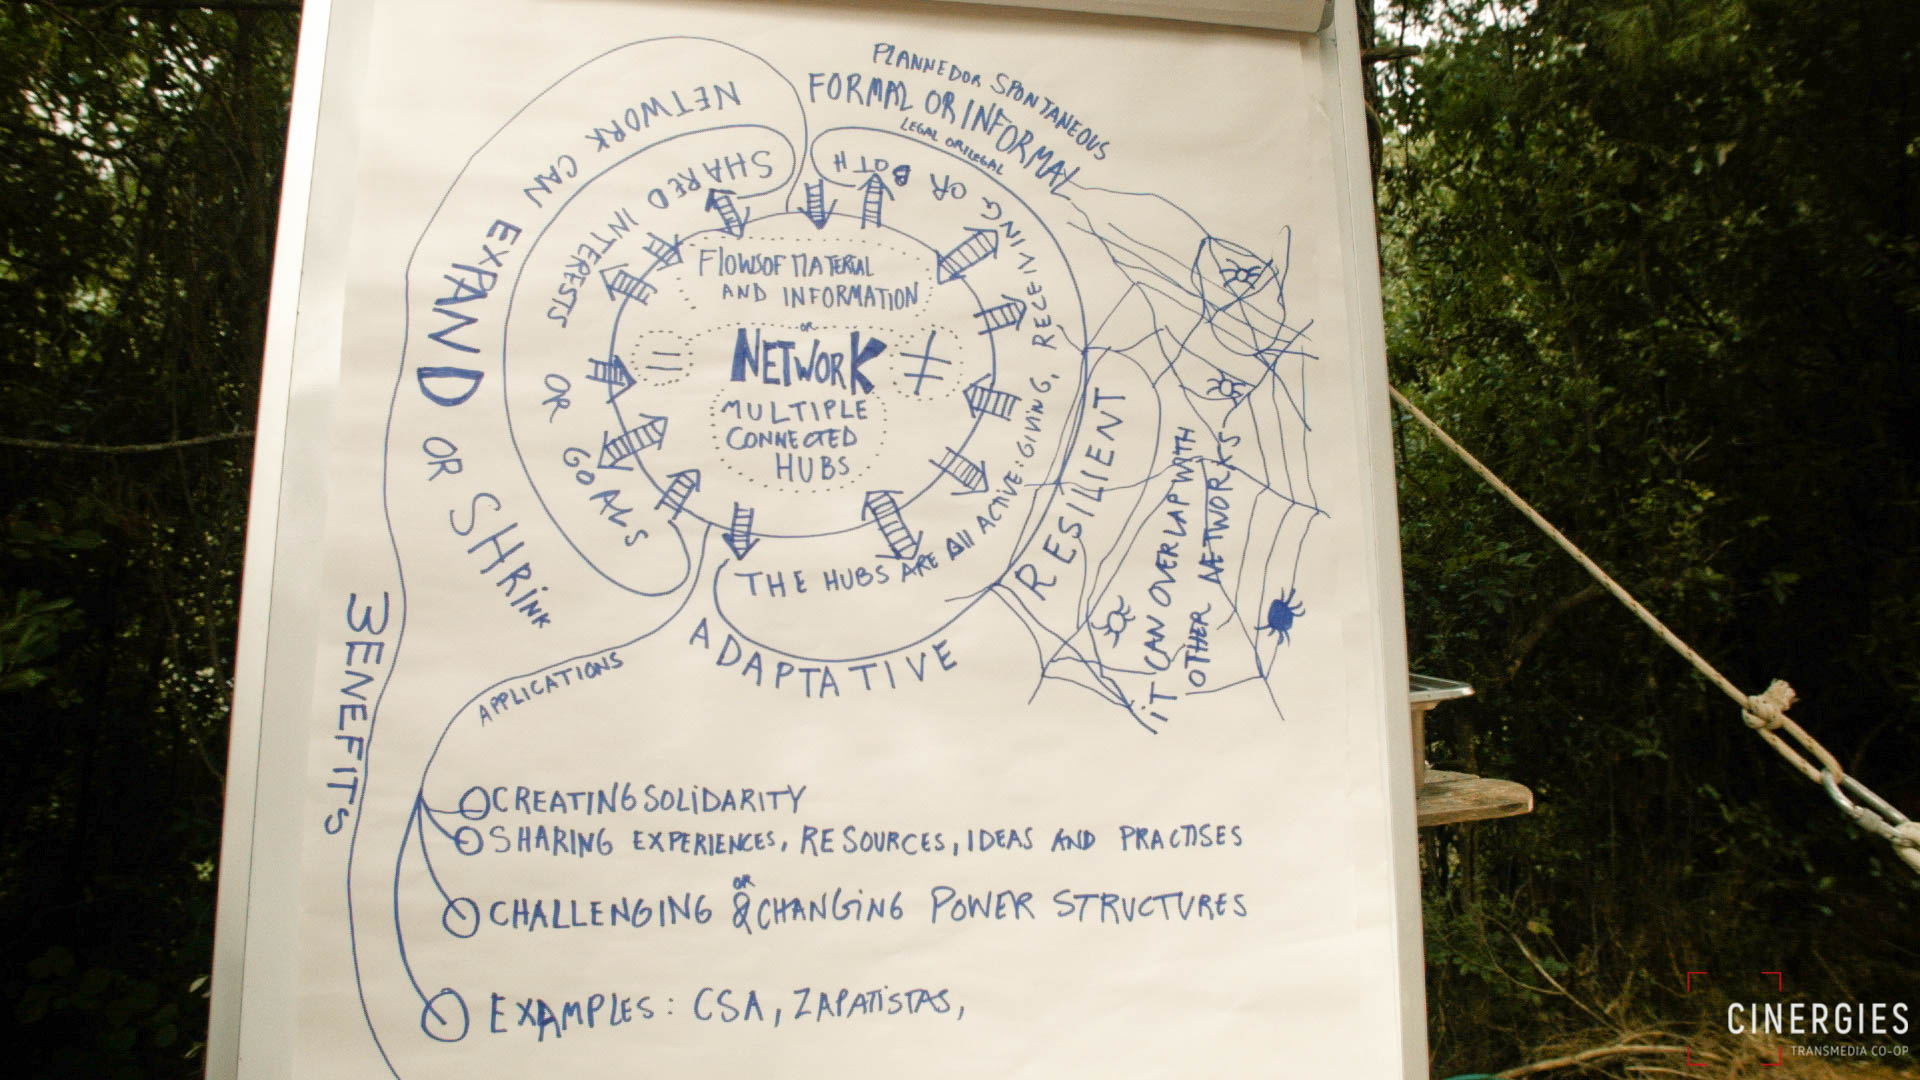 PLANNED OR SPONTANEOUS
FORMAL OR INFORMAL
LEGAL OR ILEGAL
NETWORK CAN EXPAND OR SHRINK
SHARED INTERESTS OR GOALS
FLOWS OF MATERIAL
AND INFORMATION
OR
= NETWORK ≠
MULTIPLE
CONNECTED
HUBS
THE HUBS ARE All ACTIVE: GIVING, RECEIVING OR BOTH
RESILIENT
ADAPTATIVE
iT CAN OVERLAP WITH
OTHER NETWORKS
BENEFITS
APPLICATIONS
CREATING SOLiDARITY
SHARING EXPERIENCES, RESOURCES, IDEAS AND PRACTISES
OR
CHALLENGING & CHANGiNG POWER STRUCTURES
EXAMPLES: CSA, ZAPATiSTAS,
CINERGIES
TRANSMEDIA CO-OP